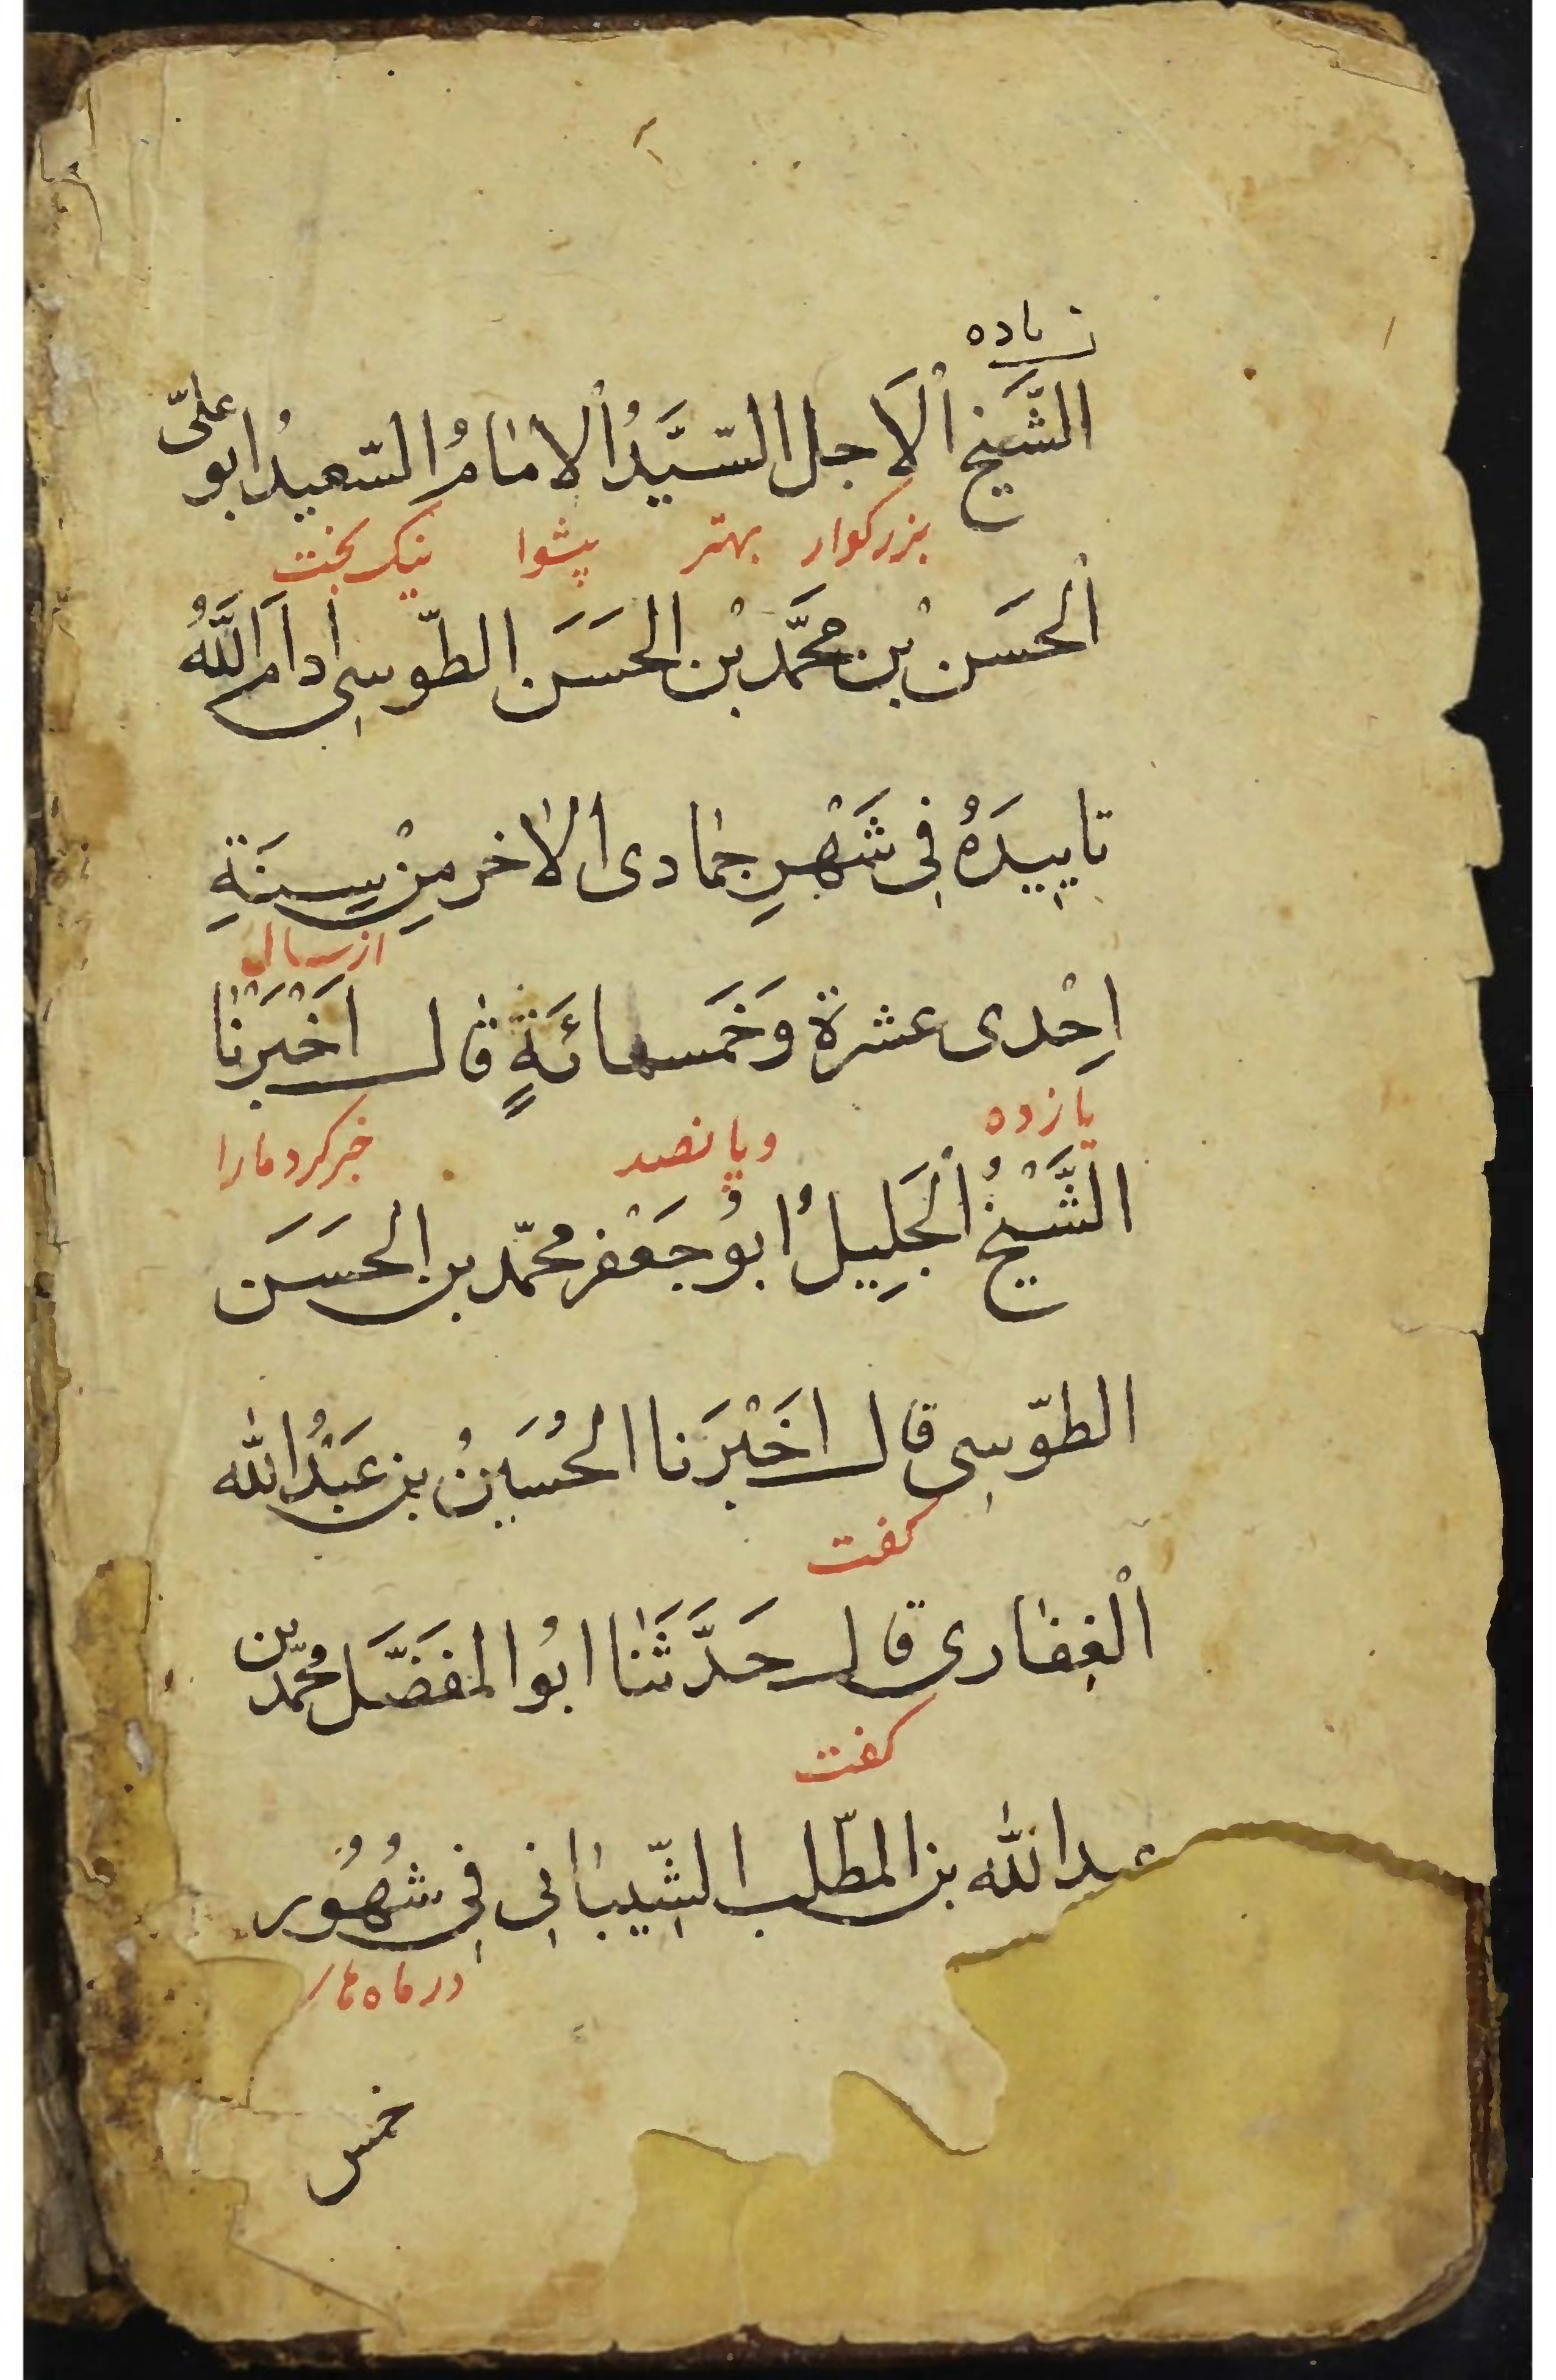 زیاده
الشَّیخ الْاَجل السَّیَّدُ الْامامُ السّعیدُ ابو علیّ
بزرکوار بهتر پیشوا نیک بخت
الْحَسَن بْن محَمَّد بْن الحَسَن الطّوسِی اَدام اللَّهُ
تاییِدَهُ فِی شَهْرِ جمادی الاخر مِنْ سِنَةِ
از سال
اِحْدی عشرة وَخَمسمائَةٍ قال اَخْبَرْنا
یازده وپانصد خبر کرد مارا
الشَّیْخُ الْجَلِیلُ ابوُ جَعْفر محمّد بن الحَسَن
الطّوسِی قال اخَبْرَنا الحُسَینُ بن عَبْدُ الله
کفت
الْغِفاری قال حَدَّثَنا ابوُ المفَضَّل محمّد بن
کفت
عبدالله بن المطّلب الشِّیبانِی فِی شُهُور
در ماه های
خمس